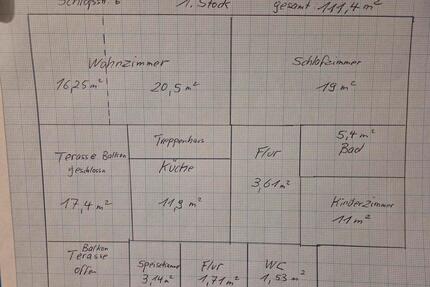 Schlossstr. 6 1. Stock gesamt 111,4 m²
Wohnzimmer
16,25 m² 20,5 m²
Schlafzimmer
19 m²
Treppenhaus
Terasse Balkon
geschlossen
17,4 m²
Küche
11,9 m²
Flur
3,61 m²
5,4 m²
Bad
Kinderzimmer
11 m²
Balkon
Terasse
offen
Speisekammer
3,14 m²
Flur
1,71 m²
WC
1,53 m²